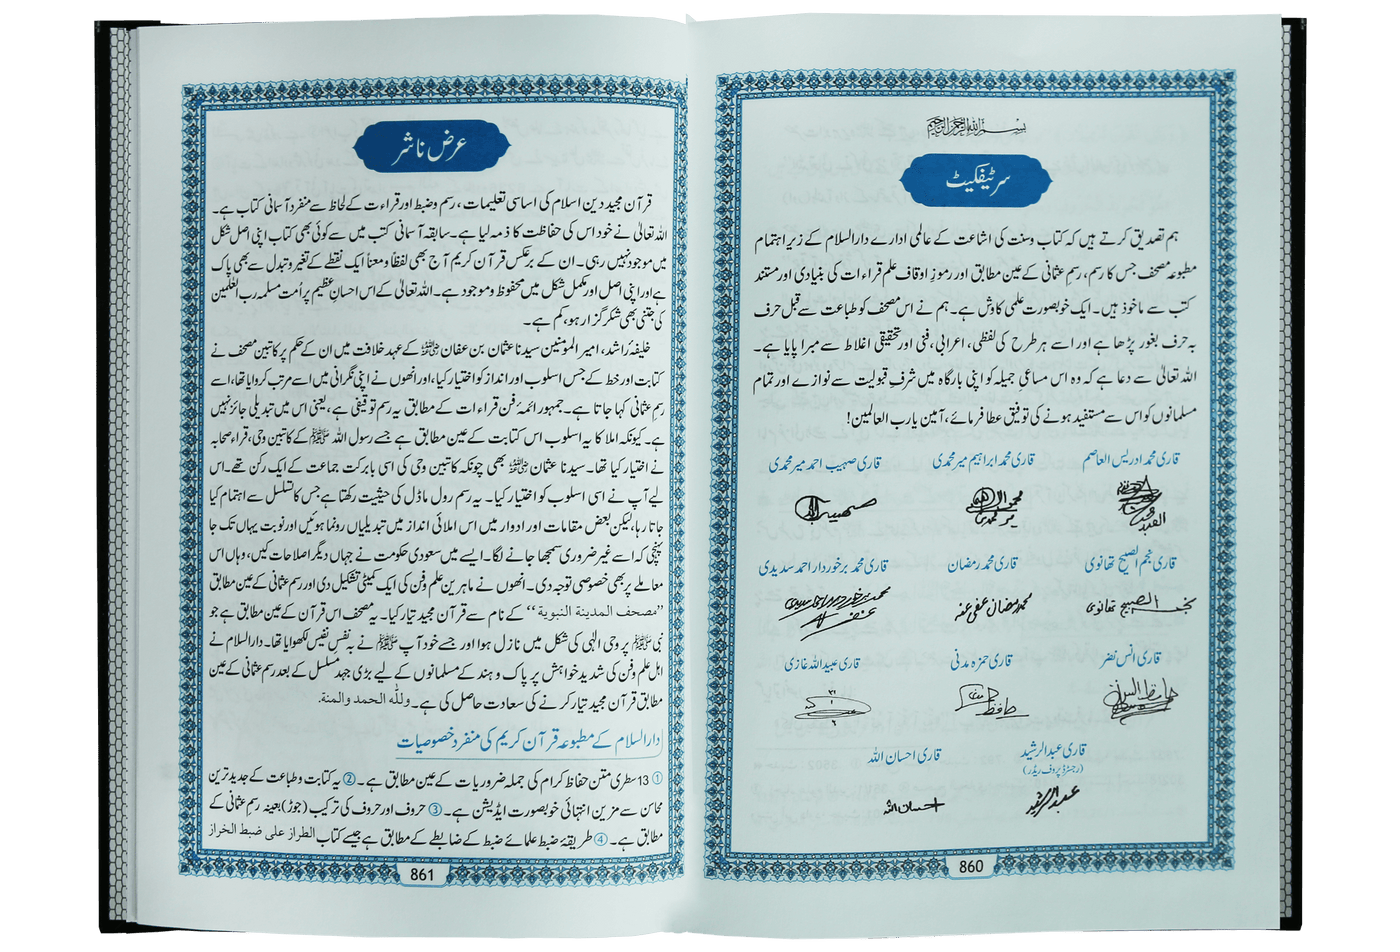 بسم الله الرحمن الرحیم
سرٹیفکیٹ
ہم تصدیق کرتے ہیں کہ کتاب وسنت کی اشاعت کے عالمی ادارے دارالسلام کے زیر اہتمام
مطبوعہ مصحف جس کا رسم، رسمِ عثمانی کے عین مطابق اور رموزِ اوقاف علم قراءات کی بنیادی اور مستند
کتب سے ماخوذ ہیں۔ ایک خوبصورت علمی کاوش ہے۔ ہم نے اس مصحف کو طباعت سے قبل حرف
بہ حرف بغور پڑھا ہے اور اسے ہر طرح کی لفظی، اعرابی، فنی اور تحقیقی اغلاط سے مبرا پایا ہے۔
اللہ تعالیٰ سے دعا ہے کہ وہ اس مساعیِ جمیلہ کو اپنی بارگاہ میں شرفِ قبولیت سے نوازے اور تمام
مسلمانوں کو اس سے مستفید ہونے کی توفیق عطا فرمائے، آمین یا رب العالمین!
قاری محمد ادریس العاصم قاری محمد ابراہیم میر محمدی قاری صہیب احمد میر محمدی
صہیب
قاری نجم الصبیح تھانوی قاری محمد رمضان قاری محمد برخوردار احمد سدیدی
نجم الصبیح تھانوی محمد رمضان عفی عنہ
قاری انس نضر قاری حمزہ مدنی قاری عبید اللہ غازی
قاری عبدالرشید قاری احسان اللہ
(رجسٹرڈ پروف ریڈر)
عبدالرشید احسان اللہ
860
عرض ناشر
قرآن مجید دین اسلام کی اساسی تعلیمات، رسم وضبط اور قراءت کے لحاظ سے منفرد آسمانی کتاب ہے۔
اللہ تعالیٰ نے خود اس کی حفاظت کا ذمہ لیا ہے۔ سابقہ آسمانی کتب میں سے کوئی بھی کتاب اپنی اصل شکل
میں موجود نہیں رہی۔ ان کے برعکس قرآن کریم آج بھی لفظاً ومعناً ایک نقطے کے تغیر و تبدل سے بھی پاک
ہے اور اپنی اصل اور مکمل شکل میں محفوظ و موجود ہے۔ اللہ تعالیٰ کے اس احسانِ عظیم پر اُمت مسلمہ رب العٰلمین
کی جتنی بھی شکر گزار ہو، کم ہے۔
خلیفہ راشد، امیر المومنین سیدنا عثمان بن عفان رضی اللہ عنہ کے عہد خلافت میں ان کے حکم پر کاتبین مصحف نے
کتابت اور خط کے جس اسلوب اور انداز کو اختیار کیا، اور انھوں نے اپنی نگرانی میں اسے مرتب کروایا تھا، اسے
رسمِ عثمانی کہا جاتا ہے۔ جمہور ائمہ فن قراءات کے مطابق یہ رسم توقیفی ہے، یعنی اس میں تبدیلی جائز نہیں
ہے۔ کیونکہ املا کا یہ اسلوب اس کتابت کے عین مطابق ہے جسے رسول اللہ ﷺ کے کاتبین وحی، قراء صحابہ
نے اختیار کیا تھا۔ سیدنا عثمان رضی اللہ عنہ بھی چونکہ کاتبین وحی کی اسی بابرکت جماعت کے ایک رکن تھے۔ اس
لیے آپ نے اسی اسلوب کو اختیار کیا۔ یہ رسم رول ماڈل کی حیثیت رکھتا ہے جس کا تسلسل سے اہتمام کیا
جاتا رہا، لیکن بعض مقامات اور ادوار میں اس املائی انداز میں تبدیلیاں رونما ہوئیں اور نوبت یہاں تک جا
پہنچی کہ اسے غیر ضروری سمجھا جانے لگا۔ ایسے میں سعودی حکومت نے جہاں دیگر اصلاحات کیں، وہاں اس
معاملے پر بھی خصوصی توجہ دی۔ انھوں نے ماہرین علم وفن کی ایک کمیٹی تشکیل دی اور رسم عثمانی کے عین مطابق
”مصحف المدينة النبوية“ کے نام سے قرآن مجید تیار کیا۔ یہ مصحف اس قرآن کے عین مطابق ہے جو
نبی ﷺ پر وحی الٰہی کی شکل میں نازل ہوا اور جسے خود آپ ﷺ نے بہ نفسِ نفیس لکھوایا تھا۔ دارالسلام نے
اہل علم وفن کی شدید خواہش پر پاک و ہند کے مسلمانوں کے لیے بڑی جہد مسلسل کے بعد رسم عثمانی کے عین
مطابق قرآن مجید تیار کرنے کی سعادت حاصل کی ہے۔ ولله الحمد والمنة.
دارالسلام کے مطبوعہ قرآن کریم کی منفرد خصوصیات
① 13 سطری متن حفاظ کرام کی جملہ ضروریات کے عین مطابق ہے۔ ② یہ کتابت و طباعت کے جدید ترین
محاسن سے مزین انتہائی خوبصورت ایڈیشن ہے۔ ③ حروف اور حروف کی ترکیب (جوڑ) بعینہٖ رسم عثمانی کے
مطابق ہے۔ ④ طریقۂ ضبط علمائے ضبط کے ضابطے کے مطابق ہے جیسے کتاب الطراز على ضبط الخراز
861